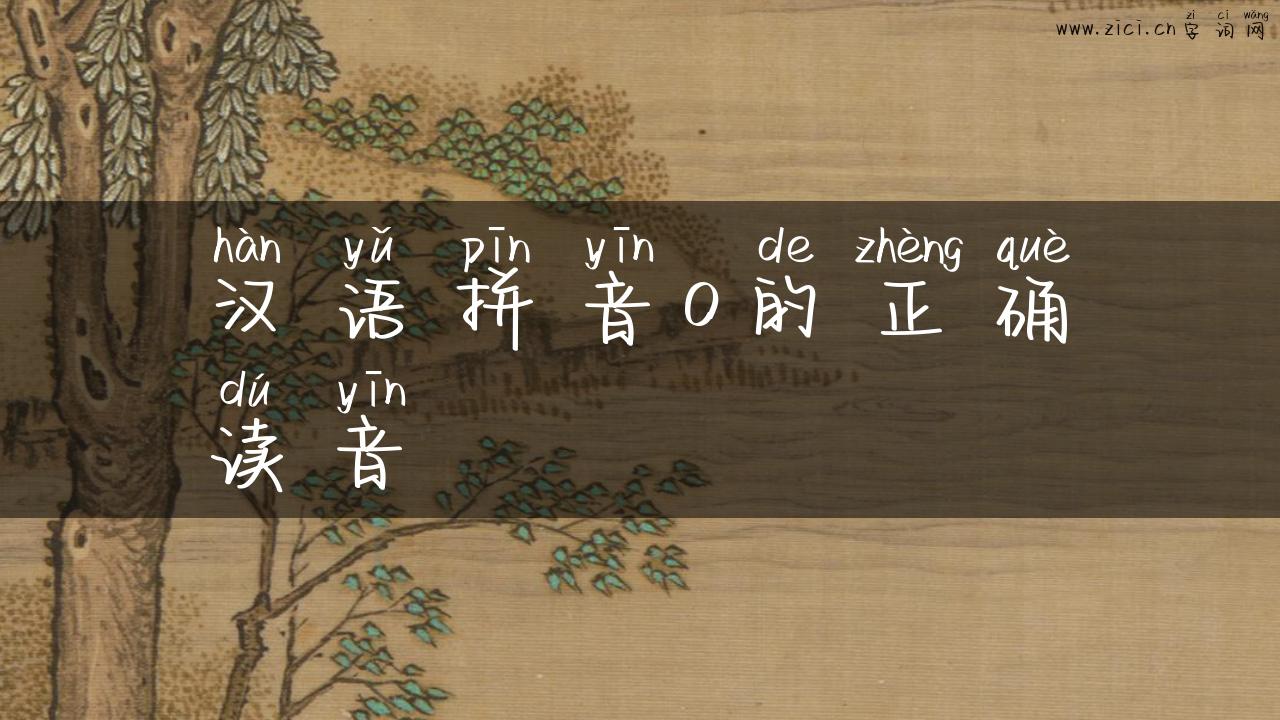 zì cí wǎng
www.zici.cn 字词网
hàn yǔ pīn yīn de zhèng què
汉语拼音O的正确
dú yīn
读音